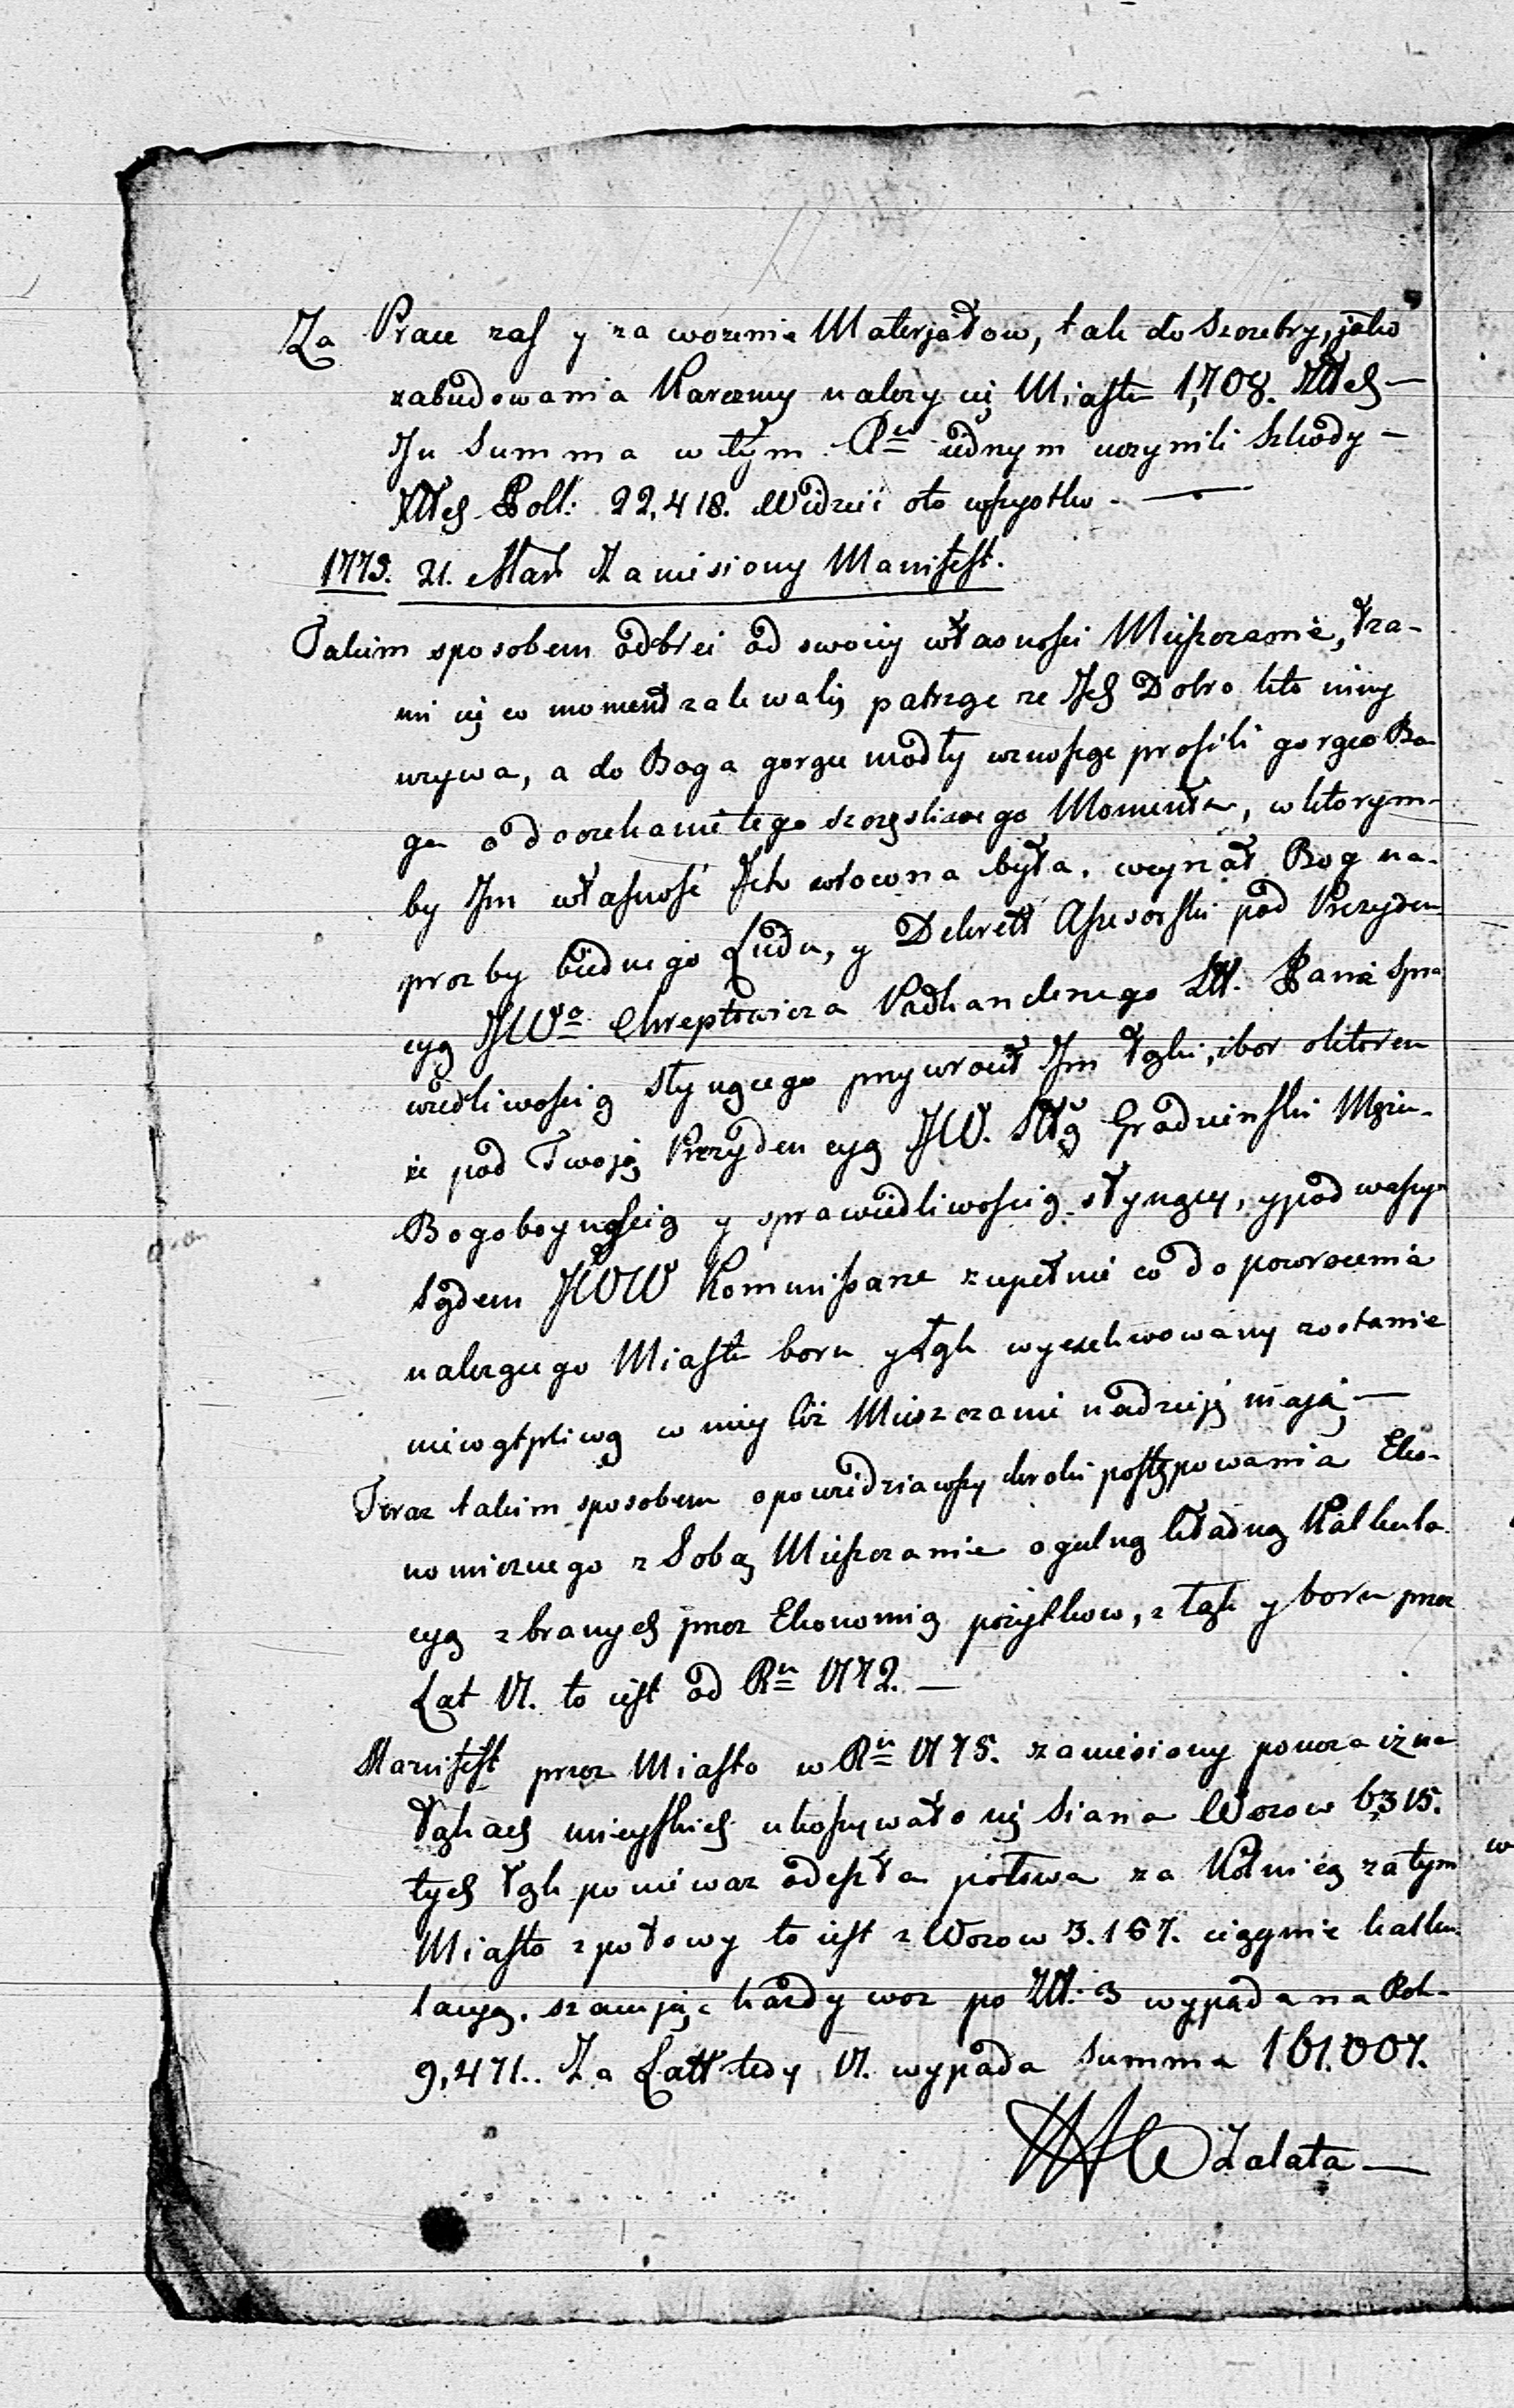 Za Prace zaś y za wozenie Materjałow, tak do Szczebry, jako
zabudowania Karczmy nalezy się Miastu 1,708. Złłch —
In Summa w tym Ru iednym uczynili Szkody —
Złłch Poll: 22,418. Widzieć oto wszystko. —
1775. 21. Mar Zaniesiony Manifest.
Takim sposobem odbici od swoiey własności Mieszczanie, Łza-
mi się co moment zalewali patrząc ze Ich Dobro kto inny
uzywa, a do Boga gorące modły wznosząc prosili gorąco Bo
ga o doczekanie tego szczęsliwego Momentu, w ktorym-
by Im własność Ich wrocona była. wejrzał Bog na
prozby biednego Ludu, y Dekrett Assessorski pod Prezyden
cyą JWo Chreptowicza Podkanclerzego Litt. Panie Spra
wiedliwością słynącego przywrocił Im Łąki, i bor o ktoren
ze pod Twoją Prezydencyą JW. Sttą Grodzieński Męzu-
Bogoboynością y sprawiedliwością słynący, y pod waszym
Sądem JWW Kommissarze zupełnie co do powrocenia
nalezącego Miastu boru y Łąk wyexekwowany zostanie
niewątpliwą w niey też Mieszczanie nadzieję mają —
Teraz takim sposobem opowiedziawszy kroki postępowania Eko-
nomicznego z Sobą Mieszczanie ogulną kładną Kalkula
cyą zbranych przez Ekonomią pożytkow, z Łąk y boru przez
Lat 17. to iest od Ru 1772. —
Manifest przez Miasto w Ru 1775. zaniesiony poucza iz na
Łąkach mieyskich ukoszywało się Siana Wozow 6,315.
tych Łąk poniewaz odeszła połowa za Kolnicą zatym
Miasto z połowy to iest z Wozow 3.157. ciągnie kalku
lacyą, szacując kazdy woz po Złł. 3 wypada na Rok-
9,471.. Za Latt tedy 17. wypada Summa 161.007.
Zalata —